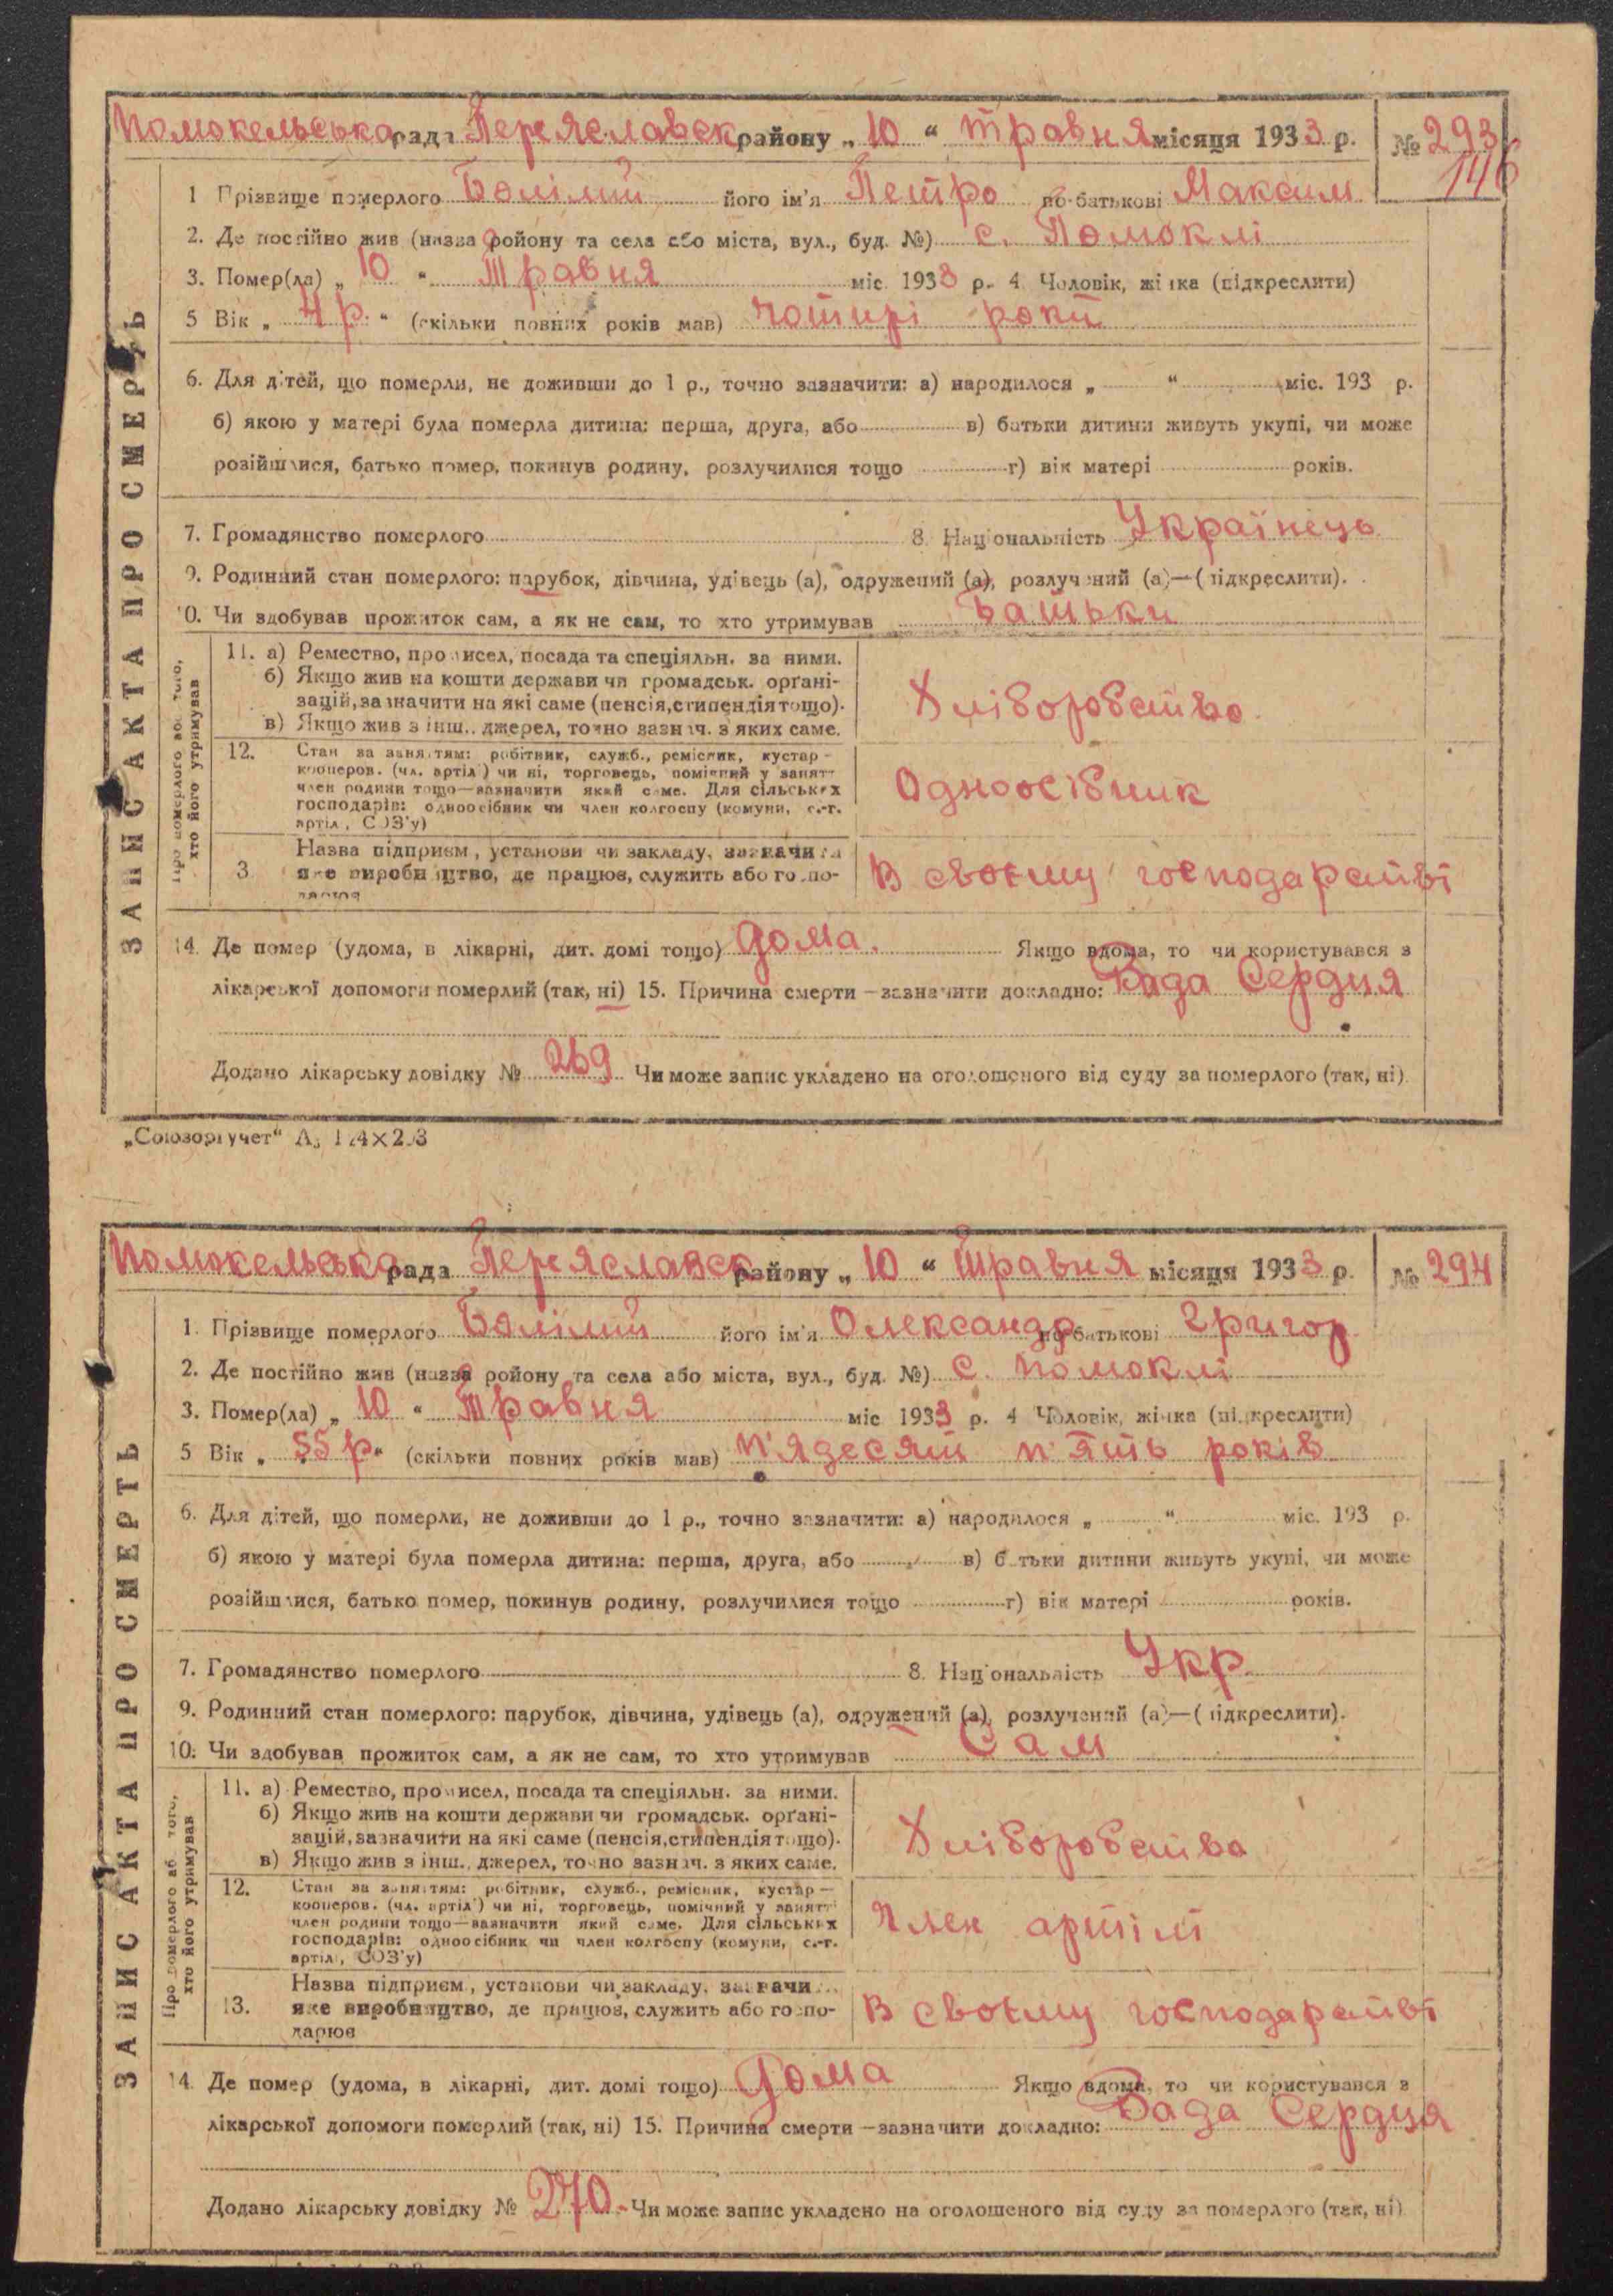 Помокельська рада Переяславск району „ 10 “ травня місяця 1933 р. № 293
146
1 Прізвище померлого Болілий його ім'я Петро по-батькові Максим
2. Де постійно жив (назва ройону та села або міста, вул., буд. №) с. Помоклі
3. Помер(ла) „ 10 “ Травня міс. 1933 р. 4 Чоловік, жінка (підкреслити)
5 Вік „ 4 р. “ (скільки повних років мав) чотирі роки
6. Для дітей, що померли, не доживши до 1 р., точно зазначити: а) народилося „ “ міс. 193 р.
б) якою у матері була померла дитина: перша, друга, або в) батьки дитини живуть укупі, чи може
розійшлися, батько помер, покинув родину, розлучилися тощо г) вік матері років.
7. Громадянство померлого 8. Національність Українець
9. Родинний стан померлого: парубок, дівчина, удівець (а), одружений (а), розлучений (а)—( підкреслити).
10. Чи здобував прожиток сам, а як не сам, то хто утримував Батьки
11. а) Ремество, промисел, посада та спеціяльн. за ними.
б) Якщо жив на кошти держави чи громадськ. орґані-
зацій, зазначити на які саме (пенсія, стипендія тощо).
в) Якщо жив з інш., джерел, точно зазнач. з яких саме.
Хліборобство
12. Стан за заняттям: робітник, служб., ремісник, кустар —
кооперов. (чл. артіл ) чи ні, торговець, помічний у занятт
член родини тощо—зазначити який саме. Для сільських
господарів: одноосібник чи член колгоспу (комуни, с.-г.
артіл , СОЗ'у)
Одноосібник
3. Назва підприєм , установи чи закладу, зазначити
яке виробництво, де працює, служить або госпо-
дарює
В своєму господарстві
Про померлого або того,
хто його утримував
14. Де помер (удома, в лікарні, дит. домі тощо) дома. Якщо вдома, то чи користувався з
лікарської допомоги померлий (так, ні) 15. Причина смерти —зазначити докладно: Вада Сердця
Додано лікарську довідку № 269 Чи може запис укладено на оголошеного від суду за померлого (так, ні)
ЗАПИС АКТА ПРО СМЕРТЬ
„Союзоргучет“
Помокельська рада Переяславск району „ 10 “ Травня місяця 1933 р. № 294
1. Прізвище померлого Болілий його ім'я Олександр по-батькові Григор
2. Де постійно жив (назва ройону та села або міста, вул., буд. №) с. Помоклі
3. Помер(ла) „ 10 “ Травня міс 1933 р. 4 Чоловік, жінка (підкреслити)
5 Вік „ 55 р “ (скільки повних років мав) п'ядесят п'ять років
6. Для дітей, що померли, не доживши до 1 р., точно зазначити: а) народилося „ “ міс. 193 р.
б) якою у матері була померла дитина: перша, друга, або в) батьки дитини живуть укупі, чи може
розійшлися, батько помер, покинув родину, розлучилися тощо г) вік матері років.
7. Громадянство померлого 8. Національність Укр
9. Родинний стан померлого: парубок, дівчина, удівець (а), одружений (а), розлучений (а)—( підкреслити).
10. Чи здобував прожиток сам, а як не сам, то хто утримував Сам
11. а) Ремество, промисел, посада та спеціяльн. за ними.
б) Якщо жив на кошти держави чи громадськ. орґані-
зацій, зазначити на які саме (пенсія, стипендія тощо).
в) Якщо жив з інш., джерел, точно зазнач. з яких саме.
Хліборобства
12. Стан за заняттям: робітник, служб., ремісник, кустар —
кооперов. (чл. артіл ) чи ні, торговець, помічний у занятт
член родини тощо—зазначити який саме. Для сільських
господарів: одноосібник чи член колгоспу (комуни, с.-г.
артіл , СОЗ'у)
Член артілі
13. Назва підприєм , установи чи закладу, зазначи
яке виробництво, де працює, служить або госпо-
дарює
В своєму господарстві
Про померлого аб того,
хто його утримував
14. Де помер (удома, в лікарні, дит. домі тощо) Дома Якщо вдома, то чи користувався з
лікарської допомоги померлий (так, ні) 15. Причина смерти —зазначити докладно: Вада Сердця
Додано лікарську довідку № 270. Чи може запис укладено на оголошеного від суду за померлого (так, ні)
ЗАПИС АКТА ПРО СМЕРТЬ